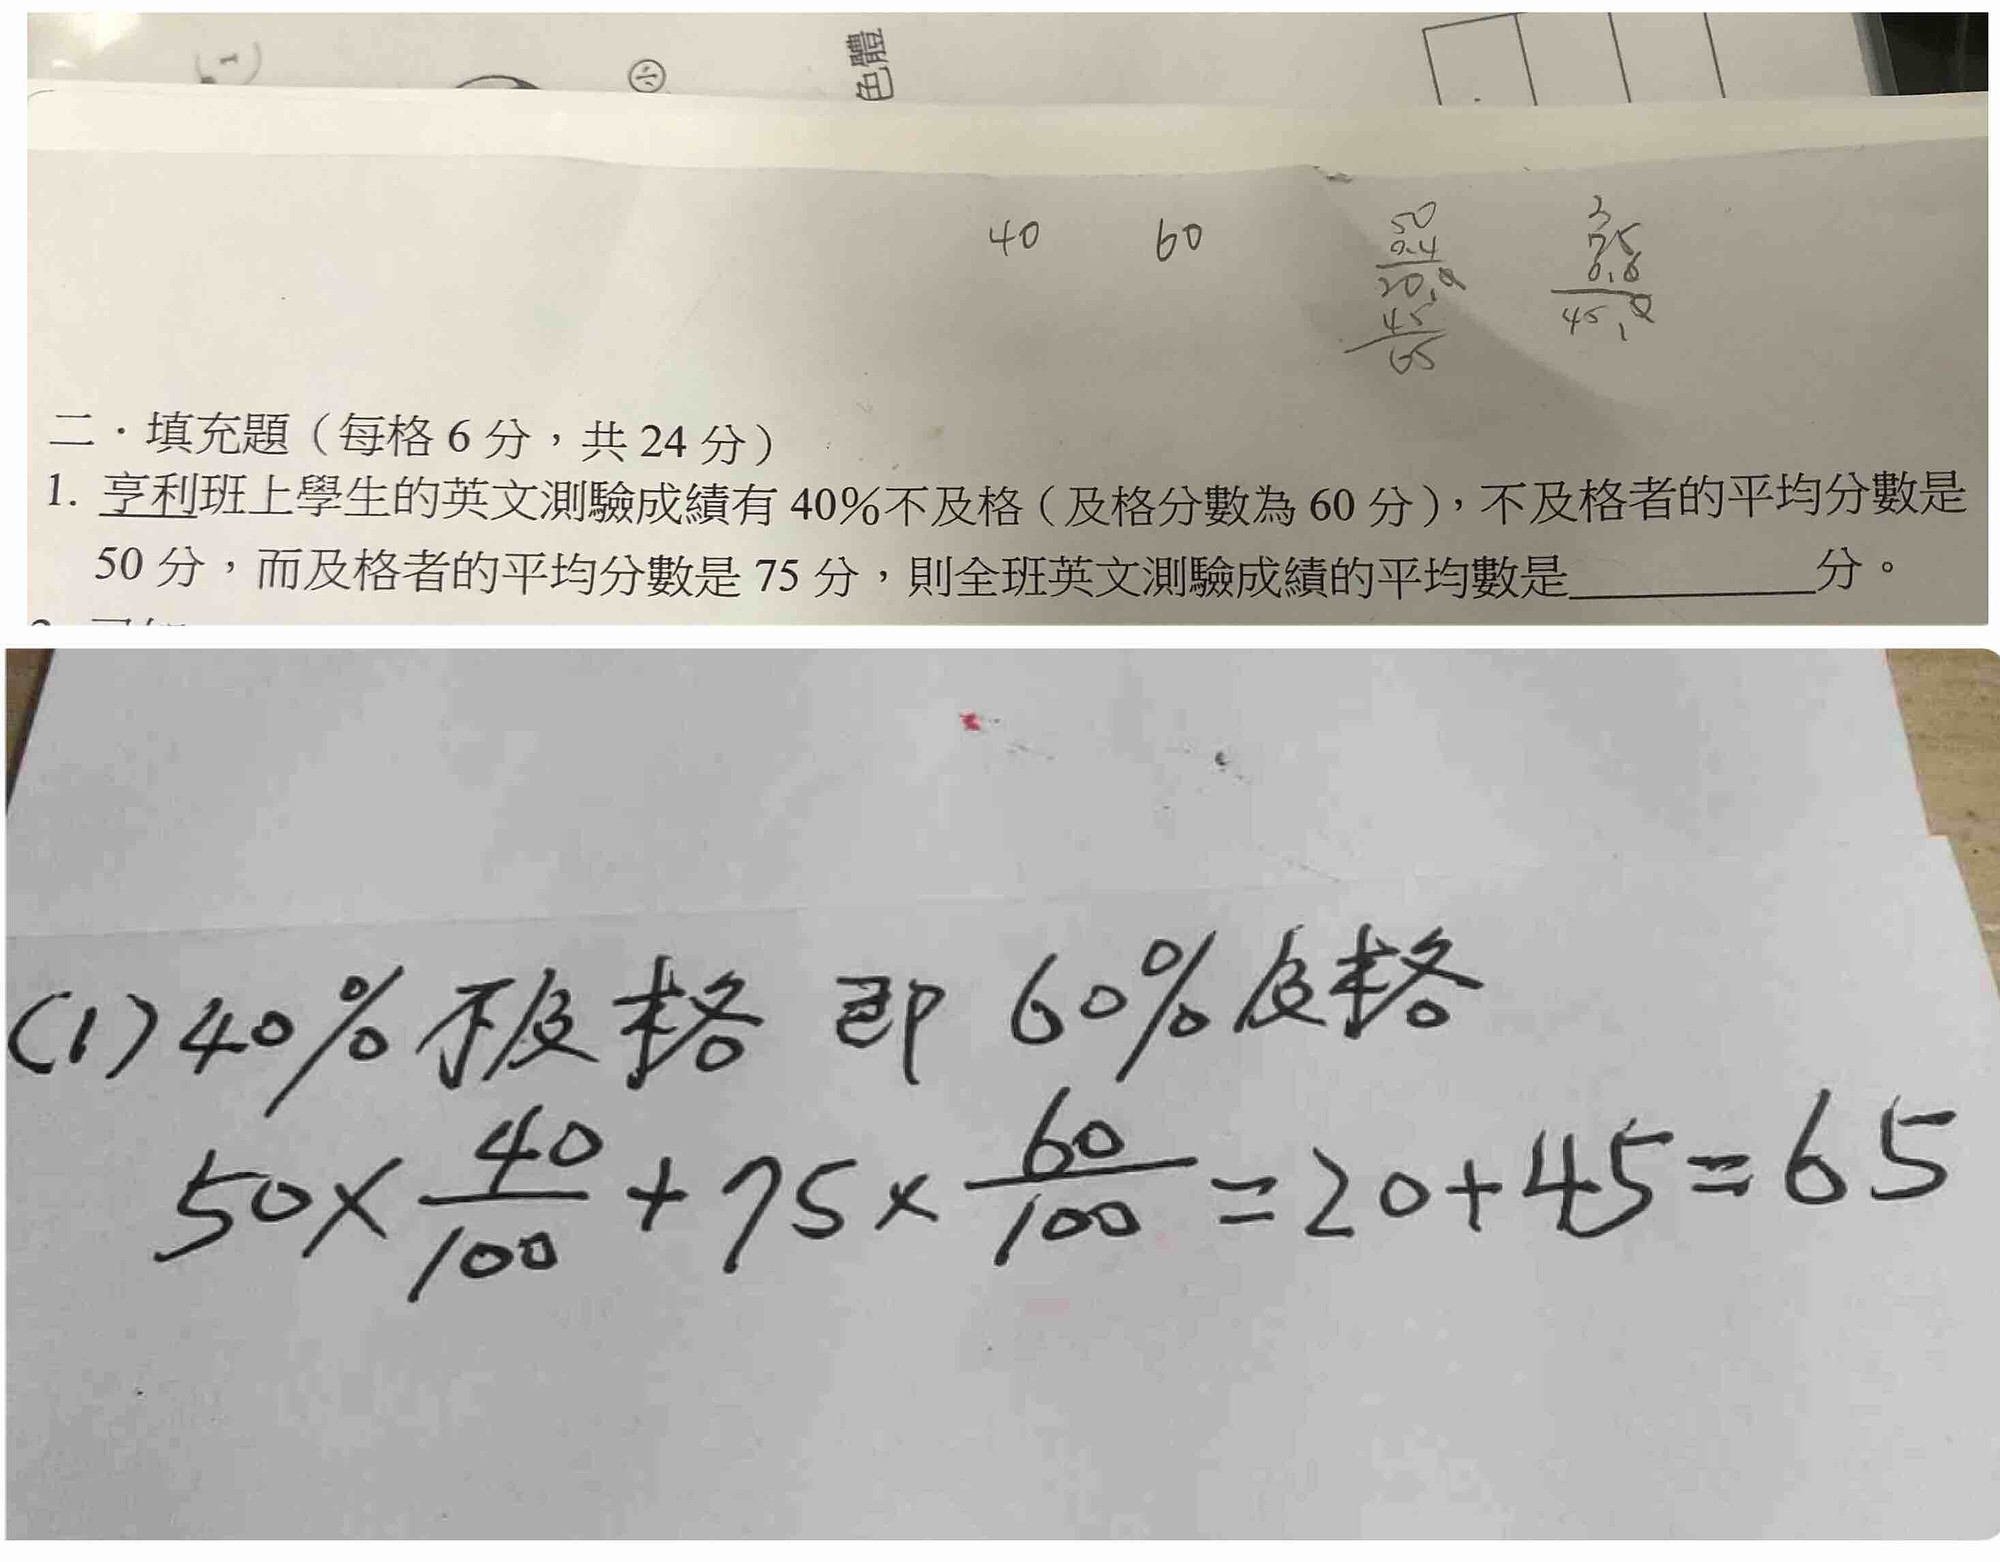 1
÷
色體
40 60
50
0.4
20.0
45
65
3
75
0.6
45.0
二．填充題（每格 6 分，共 24 分）
1. 亨利班上學生的英文測驗成績有 40%不及格（及格分數為 60 分），不及格者的平均分數是
50 分，而及格者的平均分數是 75 分，則全班英文測驗成績的平均數是__________分。
(1) 40% 不及格 即 60% 及格
50 × 40/100 + 75 × 60/100 = 20 + 45 = 65